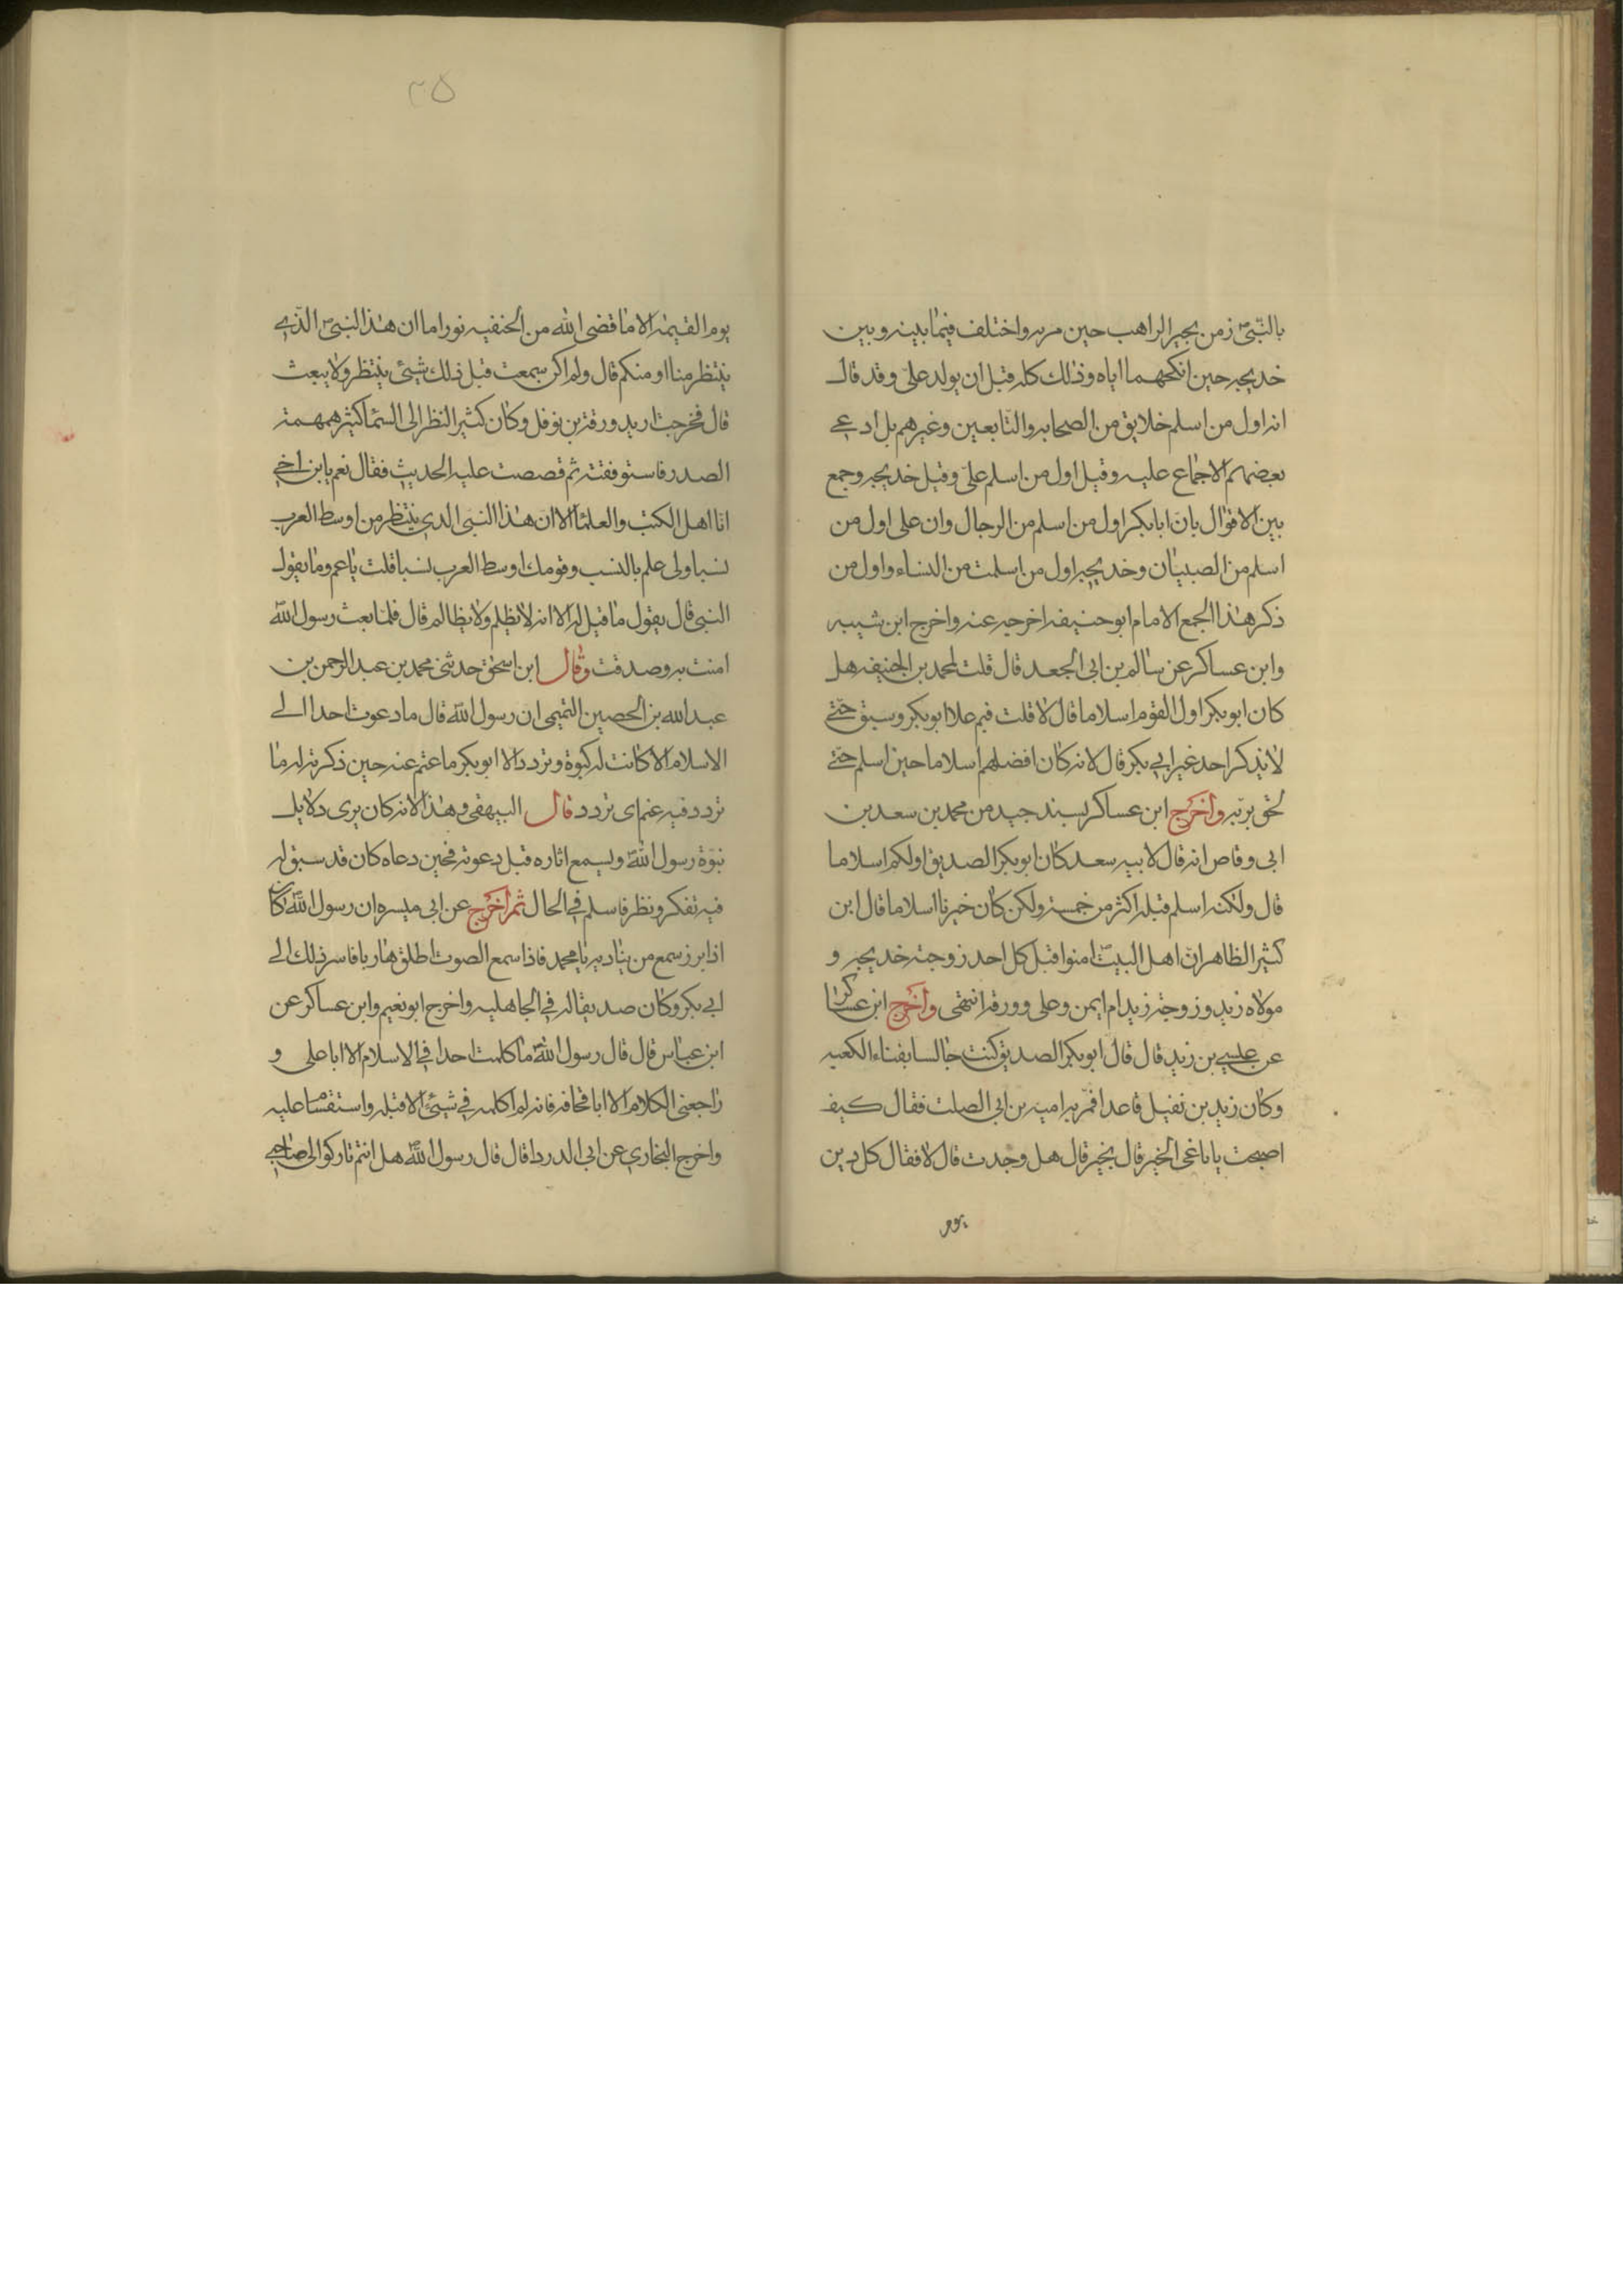 بالنبیّ زمن بحیر الراهب حین مر به واختلف فیما بینه و بین
خدیجه حین انکحهما ایاه وذلك کله قبل ان یولد علی و قد قال
انه اول من اسلم خلایق من الصحابه والتابعین وغیرهم بل ادعی
بعضهم الاجماع علیه وقیل اول من اسلم علیّ وقیل خدیجه وجمع
بین الاقوال بان ابابکر اول من اسلم من الرجال وان علی اول من
اسلم من الصبیان وخدیجه اول من اسلمت من النساء واول من
ذکر هذا الجمع الامام ابو حنیفه اخرجه عنه واخرج ابن شیبه
وابن عساکر عن سالم بن ابی الجعد قال قلت لمحمد بن الحنیفه هل
کان ابوبکر اول القوم اسلاما قال لا قلت فیم علا ابوبکر وسبق حتی
لا یذکر احد غیر ابی بکر قال لانه کان افضلهم اسلاما حین اسلم حتی
لحق بربه واخرج ابن عساکر بسند جید من محمد بن سعد بن
ابی وقاص انه قال لابیه سعد کان ابوبکر الصدیق اولکم اسلاما
قال ولکنه اسلم قبله اکثر من خمسة ولکن کان خیرنا اسلاما قال ابن
کثیر الظاهر انّ اهل البیت امنوا قبل کل احد زوجته خدیجه و
مولاه زید و زوجة زید ام ایمن وعلی وورقه انتهی واخرج ابن عساکر
عن عیسی بن زید قال قال ابوبکر الصدیق کنت جالسا بفناء الکعبه
وکان زید بن نفیل قاعدا فمّر به امیه بن ابی الصلت فقال کیف
اصبحت یا باغی الخیر قال بخیر قال هل وجدت قال لا فقال کل دین
یوم
۲۵
یوم القیمة الا ما قضی الله من الحنفیه نورا ما ان هذا النبیّ الذّی
ینتظر منا او منکم قال ولم اکن سمعت قبل ذلك شیئی ینتظر ولا یبعث
قال فخرجت ارید ورقة بن نوفل وکان کثیر النظر الی السما کثیر همهمة
الصدر فاستوقفته ثم قصصت علیه الحدیث فقال نعم یا بن اخی
انا اهل الکتب والعلما الا ان هذا النبی الذی ینتظر من اوسط العرب
نسبا ولی علم بالنسب وقومك اوسط العرب نسبا قلت یا عم وما یقول
النبی قال یقول ما قیل له الا انه لا یظلم ولا یظالم قال فلما بعث رسول الله
امنت به وصدقت وقال ابن اسحق حدثنی محمد بن عبد الرحمن بن
عبد الله بن الحصین التمیمی ان رسول الله قال ما دعوت احدا الی
الاسلام الا کانت له کبوة وتردد الا ابوبکر ما عتم عنه حین ذکرته له وما
تردد فیه عتم ای تردد قال البیهقی وهذا لانه کان یری دلایل
نبوة رسول الله ویسمع اثاره قبل دعوته فحین دعاه کان قد سبق له
فیه تفکر ونظر فاسلم فی الحال ثم اخرج عن ابی میسره ان رسول الله کان
اذا برز سمع من ینادیه یا محمد فاذا سمع الصوت اطلق هاربا فاسر ذلك الی
ابی بکر وکان صدیقا له فی الجاهلیه واخرج ابو نعیم وابن عساکر عن
ابن عباس قال قال رسول الله ما کلمت احدا فی الاسلام الا ابا علی و
راجعنی الکلام الا ابا قحافه فانه لم اکلمه فی شیئ الا قبله واستقسا علیه
واخرج البخاری عن ابی الدردا قال قال رسول الله هل انتم تارکوا لی صاحبی